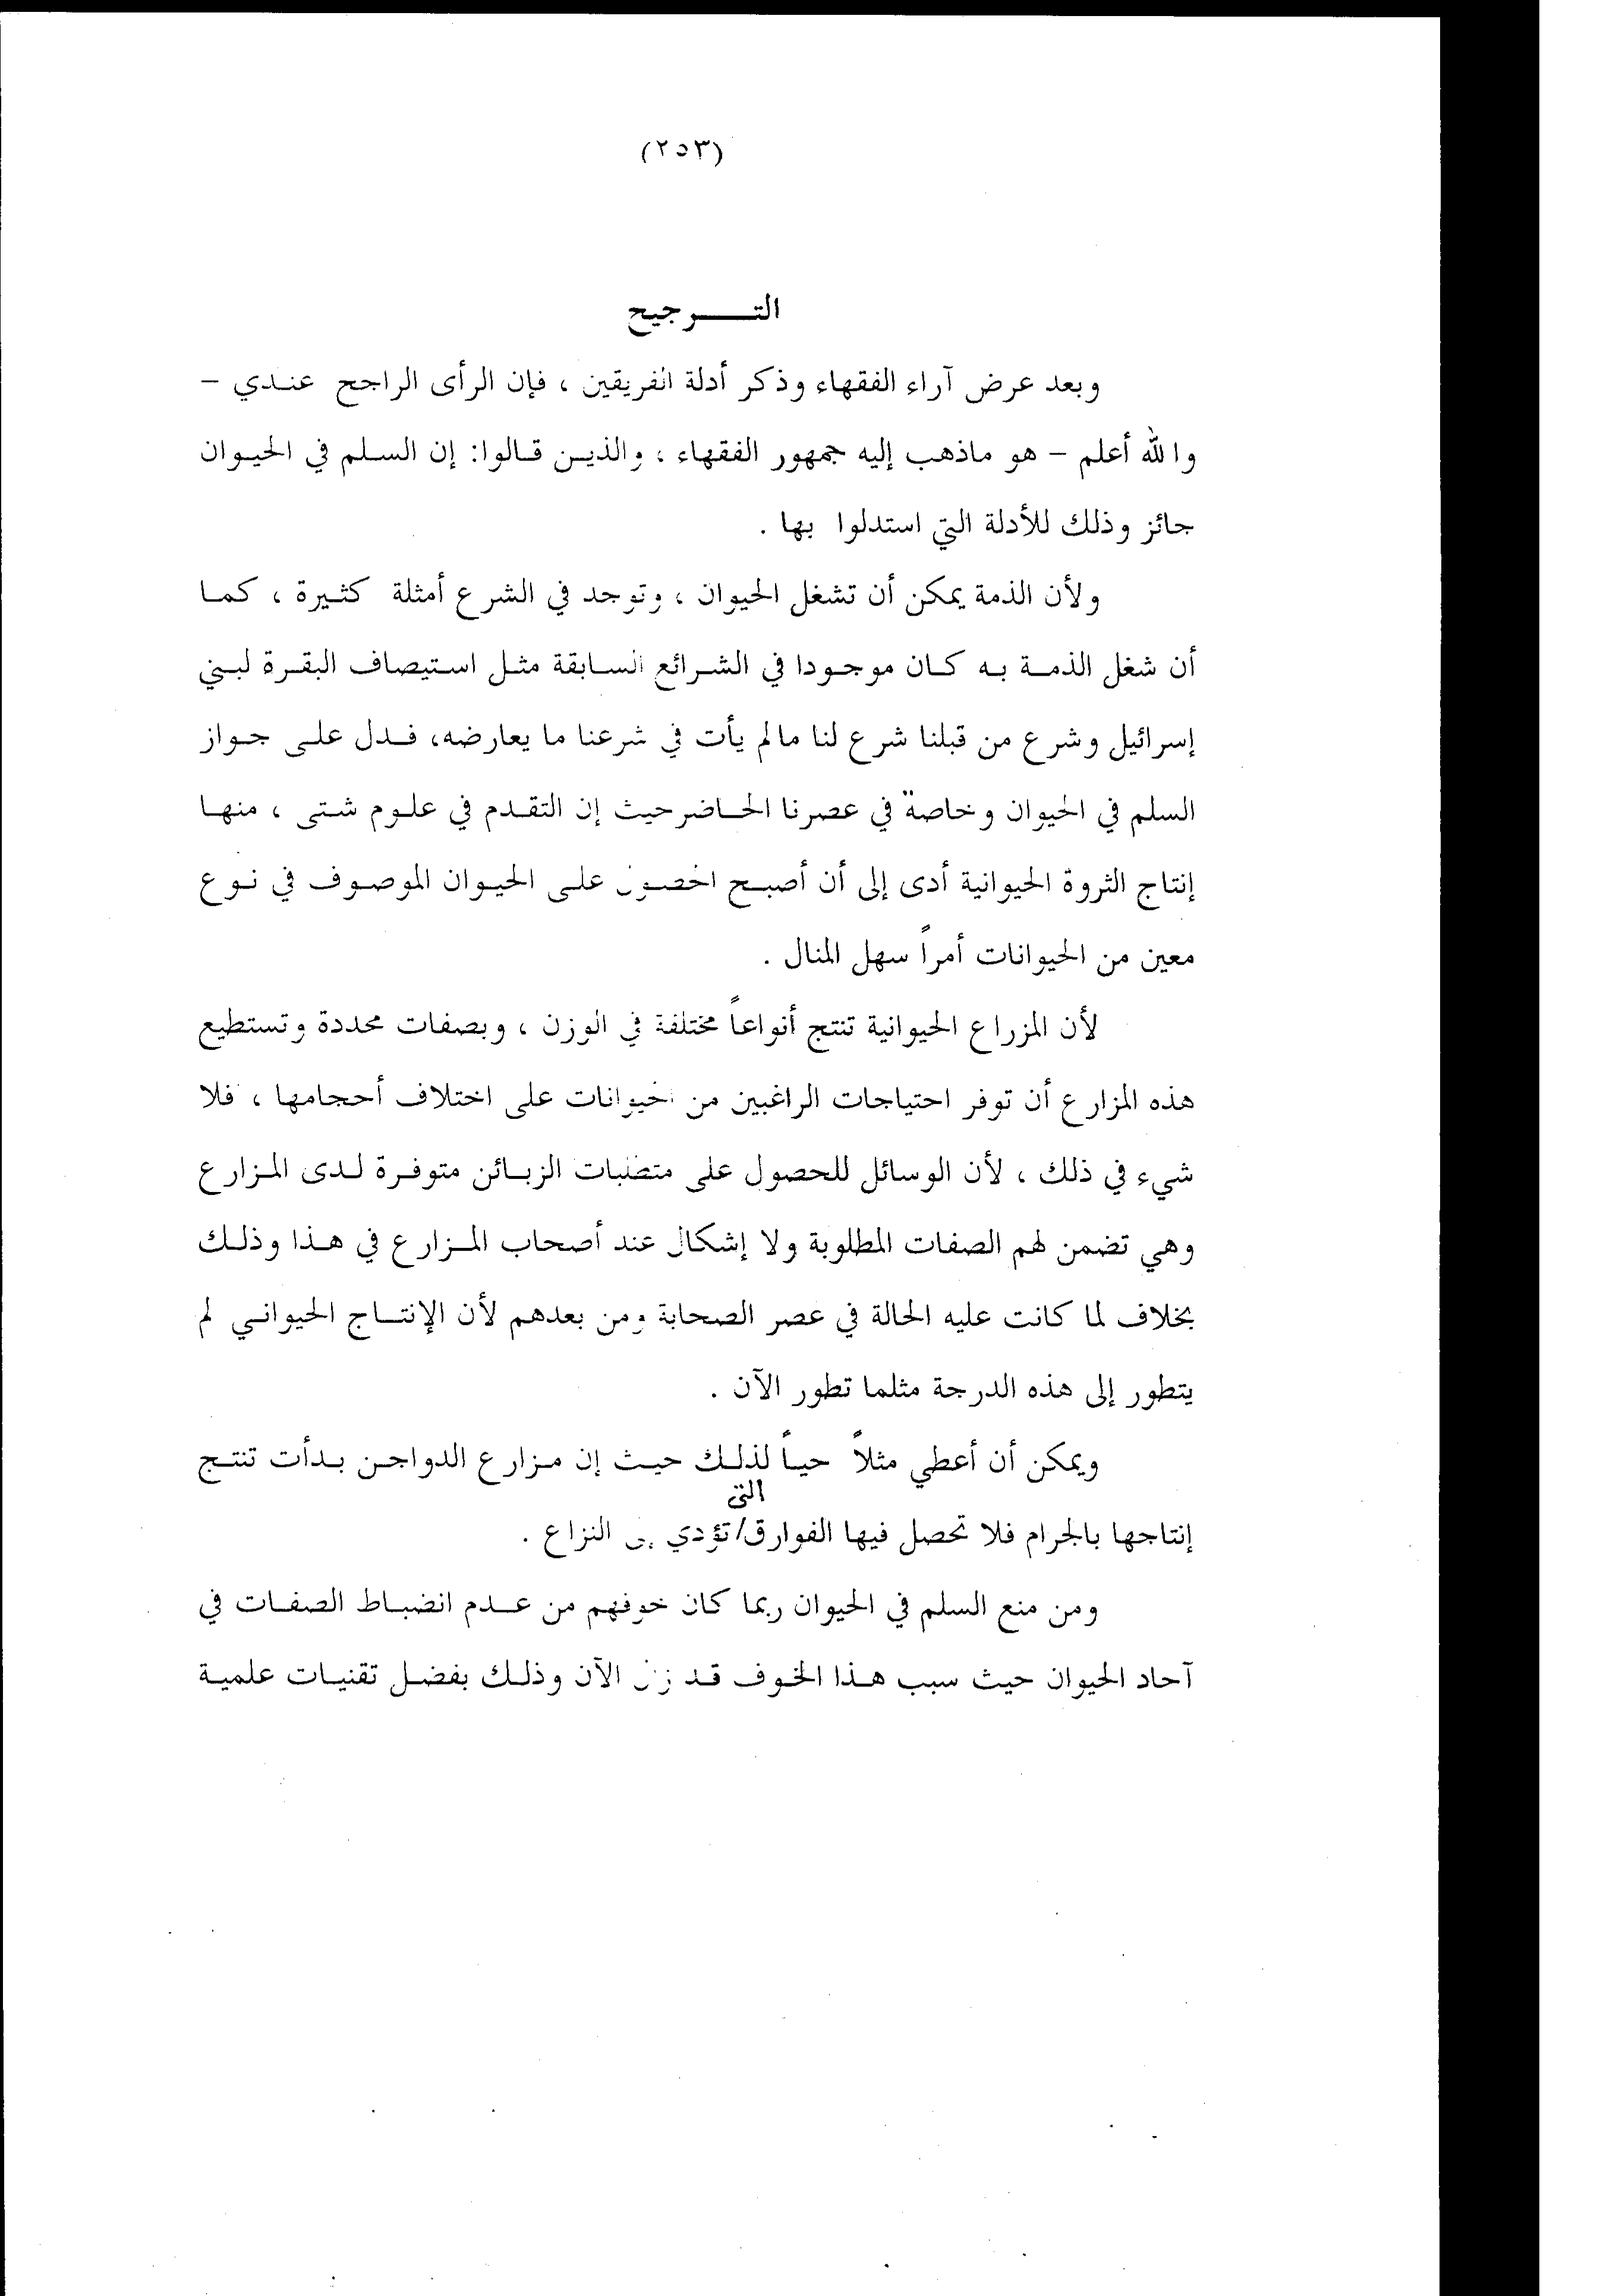 (٢٥٣)
الترجيح
وبعد عرض آراء الفقهاء وذكر أدلة الفريقين ، فإن الرأى الراجح عندي –
والله أعلم – هو ماذهب إليه جمهور الفقهاء ، والذين قالوا: إن السلم في الحيوان
جائز وذلك للأدلة التي استدلوا بها .
ولأن الذمة يمكن أن تشغل الحيوان ، وتوجد في الشرع أمثلة كثيرة ، كما
أن شغل الذمة به كان موجودا في الشرائع السابقة مثل استيصاف البقرة لبني
إسرائيل وشرع من قبلنا شرع لنا مالم يأت في شرعنا ما يعارضه، فدل على جواز
السلم في الحيوان وخاصة في عصرنا الحاضر حيث إن التقدم في علوم شتى ، منها
إنتاج الثروة الحيوانية أدى إلى أن أصبح الحصول على الحيوان الموصوف في نوع
معين من الحيوانات أمراً سهل المنال .
لأن المزراع الحيوانية تنتج أنواعاً مختلفة في الوزن ، وبصفات محددة وتستطيع
هذه المزارع أن توفر احتياجات الراغبين من الحيوانات على اختلاف أحجامها ، فلا
شيء في ذلك ، لأن الوسائل للحصول على متطلبات الزبائن متوفرة لدى المزارع
وهي تضمن لهم الصفات المطلوبة ولا إشكال عند أصحاب المزارع في هذا وذلك
بخلاف لما كانت عليه الحالة في عصر الصحابة ومن بعدهم لأن الإنتاج الحيواني لم
يتطور إلى هذه الدرجة مثلما تطور الآن .
ويمكن أن أعطي مثلاً حياً لذلك حيث إن مزارع الدواجن بدأت تنتج
التى
إنتاجها بالجرام فلا تحصل فيها الفوارق/تؤدي إلى النزاع .
ومن منع السلم في الحيوان ربما كان خوفهم من عدم انضباط الصفات في
آحاد الحيوان حيث سبب هذا الخوف قد زال الآن وذلك بفضل تقنيات علمية